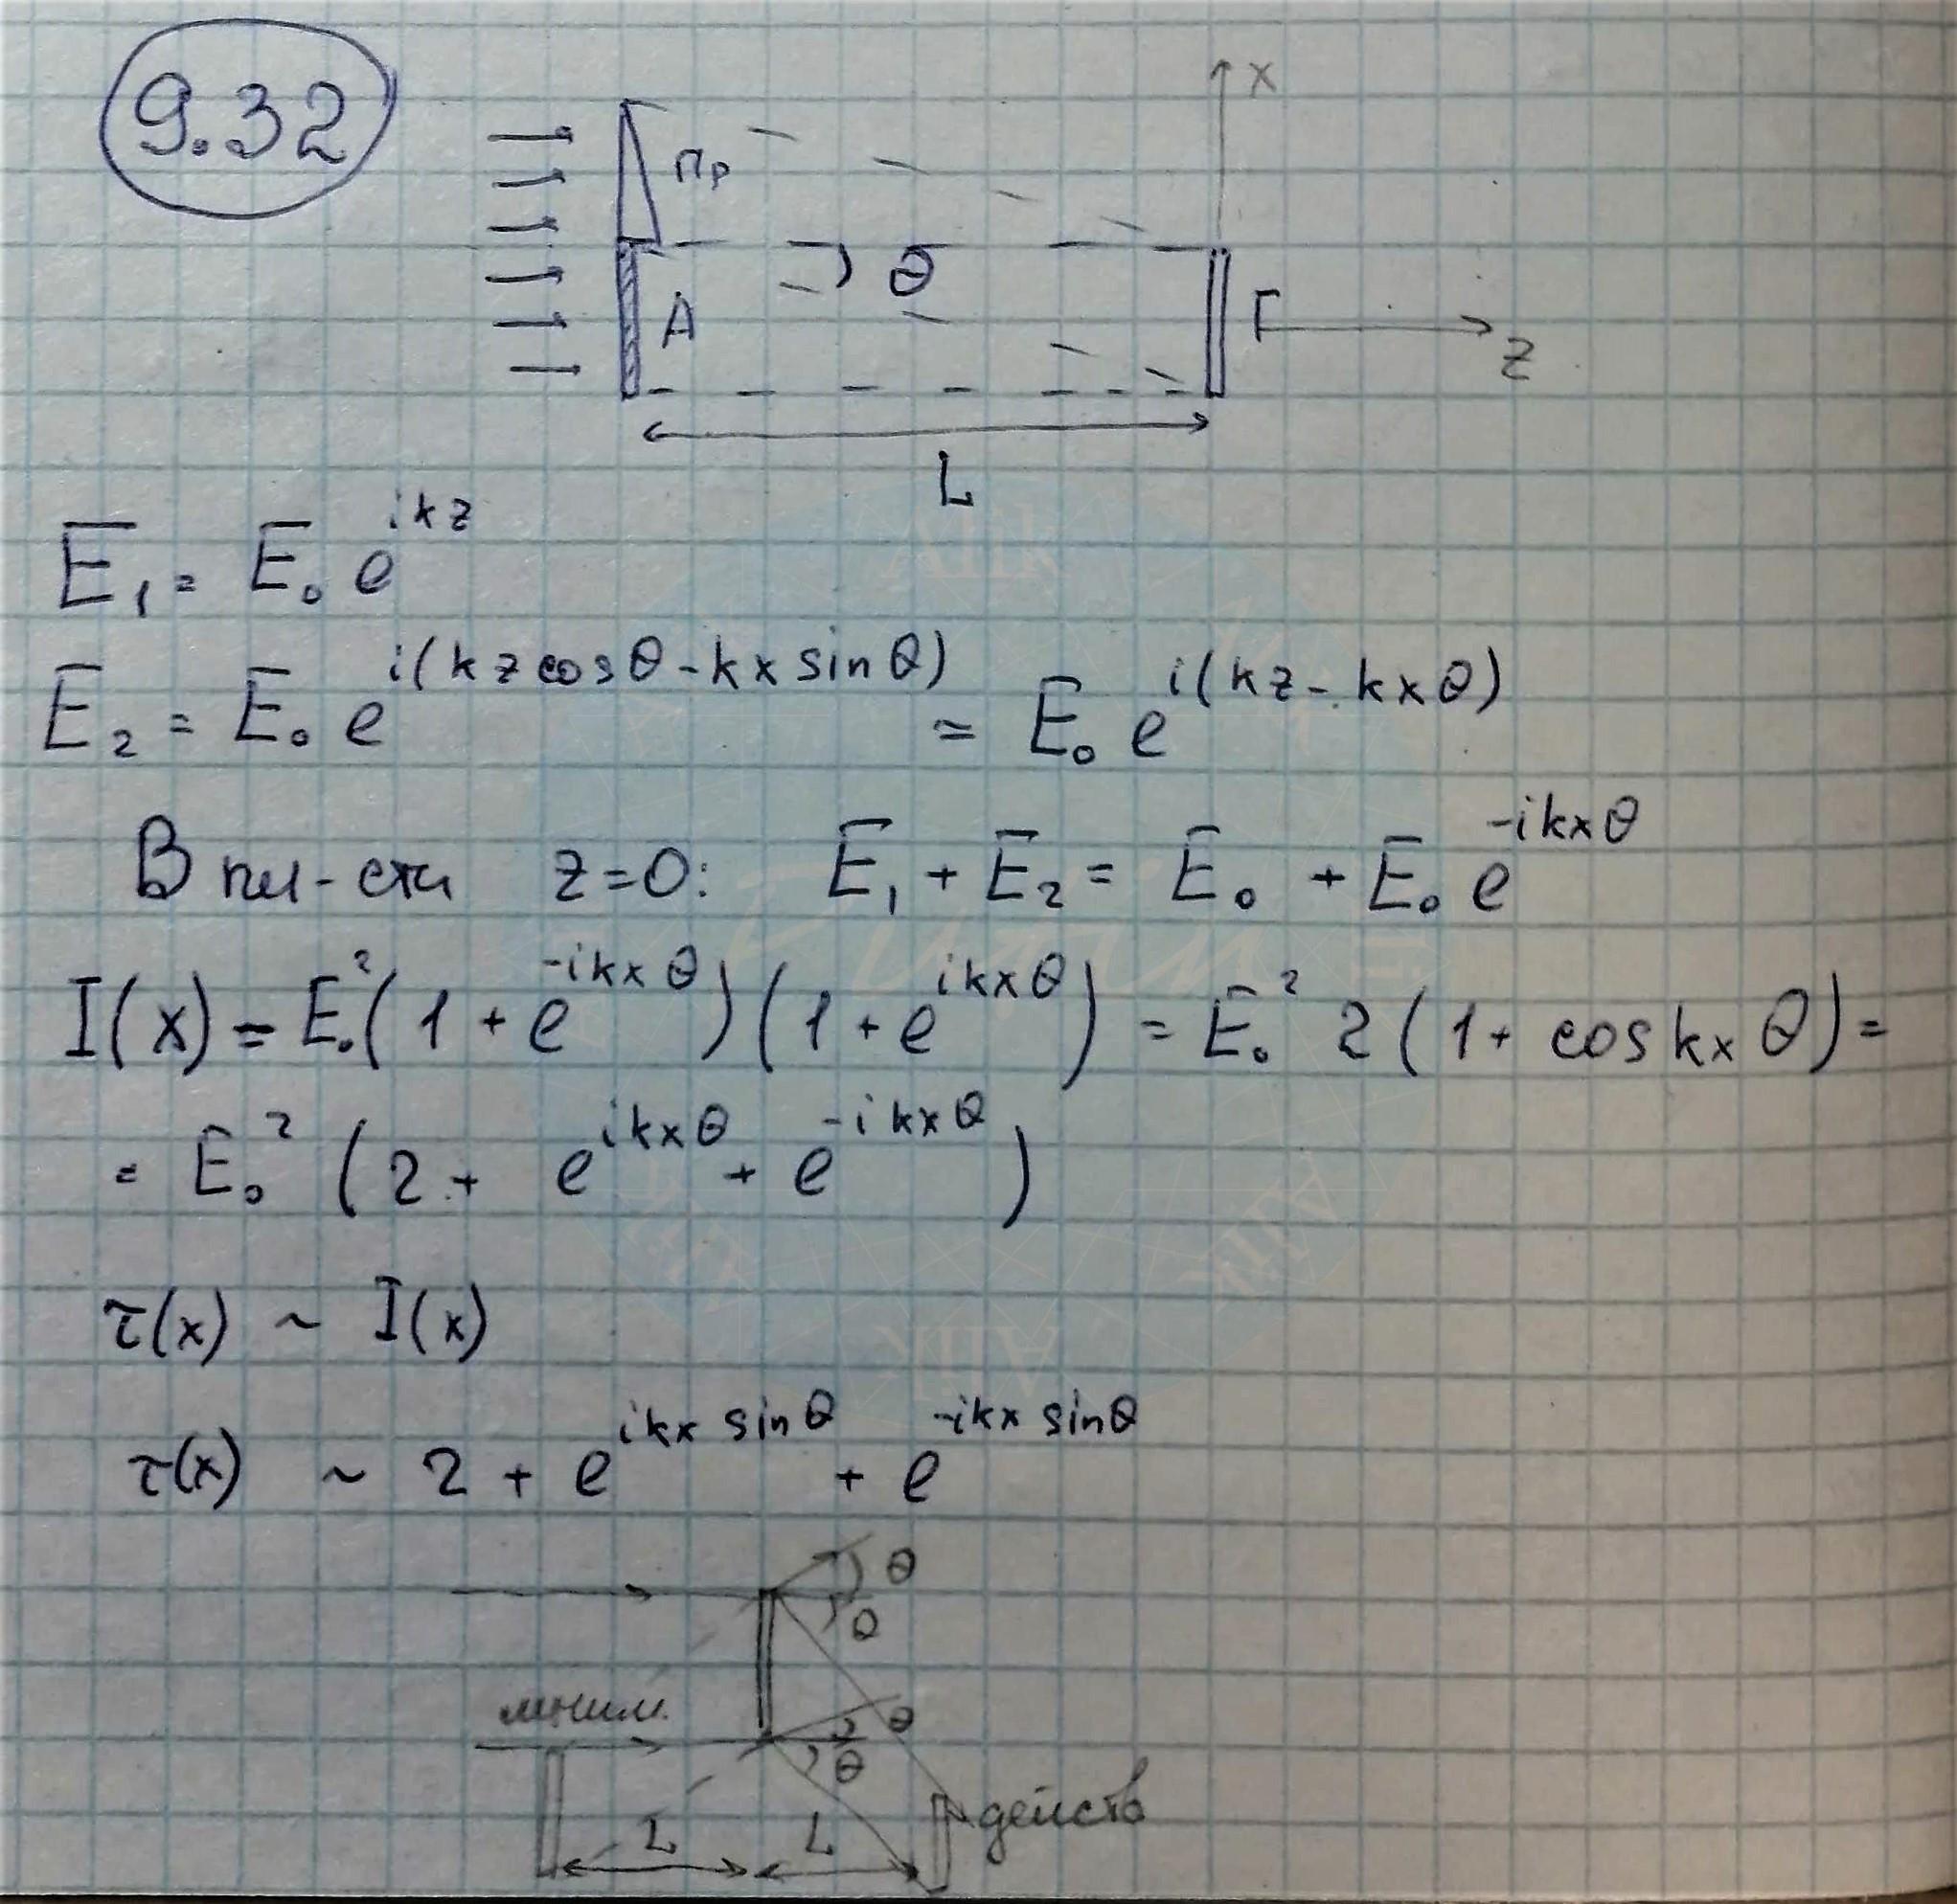 9.32
x
Пр
θ
A
Г
z
L
E₁ = E₀ e^{ikz}
E₂ = E₀ e^{i(kz cosθ - kx sinθ)} = E₀ e^{i(kz - kxθ)}
В пл-сти z=0: E₁ + E₂ = E₀ + E₀ e^{-ikxθ}
I(x) = E₀²(1 + e^{-ikxθ})(1 + e^{ikxθ}) = E₀² 2(1 + cos kxθ) =
= E₀² (2 + e^{ikxθ} + e^{-ikxθ})
τ(x) ~ I(x)
τ(x) ~ 2 + e^{ikx sinθ} + e^{-ikx sinθ}
θ
θ
мним.
θ
θ
L L
действ